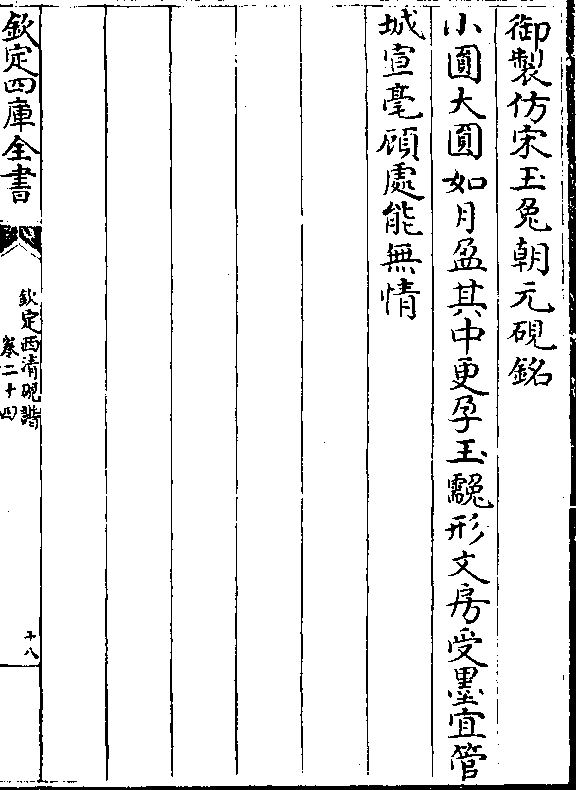 御製仿宋玉兔朝元硯銘
小圓大圓如月盈其中更孕玉㕙形文房受墨宜管
城宣毫頋處能無情
欽定四庫全書
欽定西清硯譜
卷二十四
十八